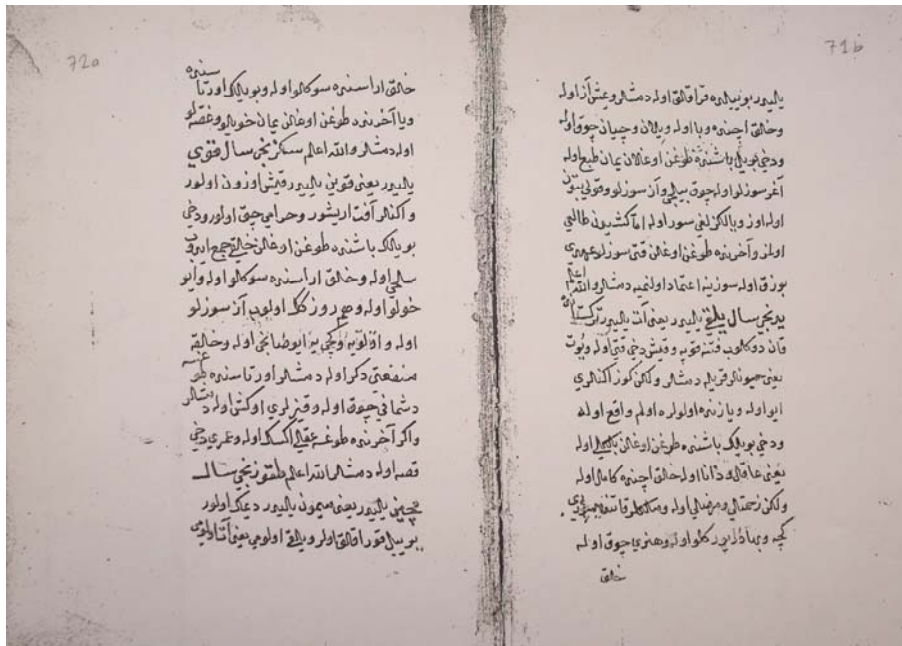 71b
ييلدر بو ييلده قراقلق اوله دمشلر و عيش آز اوله
وخالق اچنده وبا اوله و ييلان و چيان چوق اوله
ودخي بو ييل باشنده طوغن اوغلان يمان طبع اوله
آغر سوزلو اوله چوق و آز سوزلو و قولي بتون
اوله اوز و يالكزلغي سور اوله اما
اولمز و آخرنده طوغن اوغلان قتي سوزلو
بوزق اوله سوزينه اعتماد اولنميه دمشلر والله اعلم
يدنجي سال يلقي ييلدر يعني آت ييلدر
قان دوكلوب فتنه قوپه و قيش دخي قتي اوله و
يعني حيوانلر قريله دمشلر ولكن كوز اكنلري
ايو اوله و يازنده اولولره اولم واقع اوله
ودخي بو ييلك باشنده طوغن اوغلان اوله
يعني عاقل و دانا اوله خالق اچنده كامل اوله
ولكن زحمتلي و مرضلي اوله و
كچه و اوله و هنري چوق اوله
خالق
72a
خالق اراسنده سوكلو اوله و بو ييلك اورتا سنده
ويا آخرنده طوغن اوغلان يمان خويلو و غصه لو
اوله دمشلر والله اعلم سكزنجي سال قوي
ييلدر يعني قوين ييلدر قيش اوزون اولور
و اكنلر آفت اريشور و حرامي چوق اولور ودخي
بو ييلك باشنده طوغن اوغلان جمع ايدوب
اوله و خالق اراسنده سوكلو اوله و ايو
خولو اوله و هم اولوب آز سوزلو
اوله و ايو اوله و خالقه
منفعتي دكر اوله دمشلر اورتاسنده طوغسه
دشماني چوق اوله و قيزلري اوكش اوله دمشلر
واكر آخرنده طوغسه عقلي اكسك اوله و عمري دخي
قصه اوله دمشلر الله اعلم طقوزنجي سال
پچين ييلدر يعني ميمون ييلدر ديمك اولور
بو ييل قوراقلق اولر و ييلقي اولومي يعني آتلر اولومي